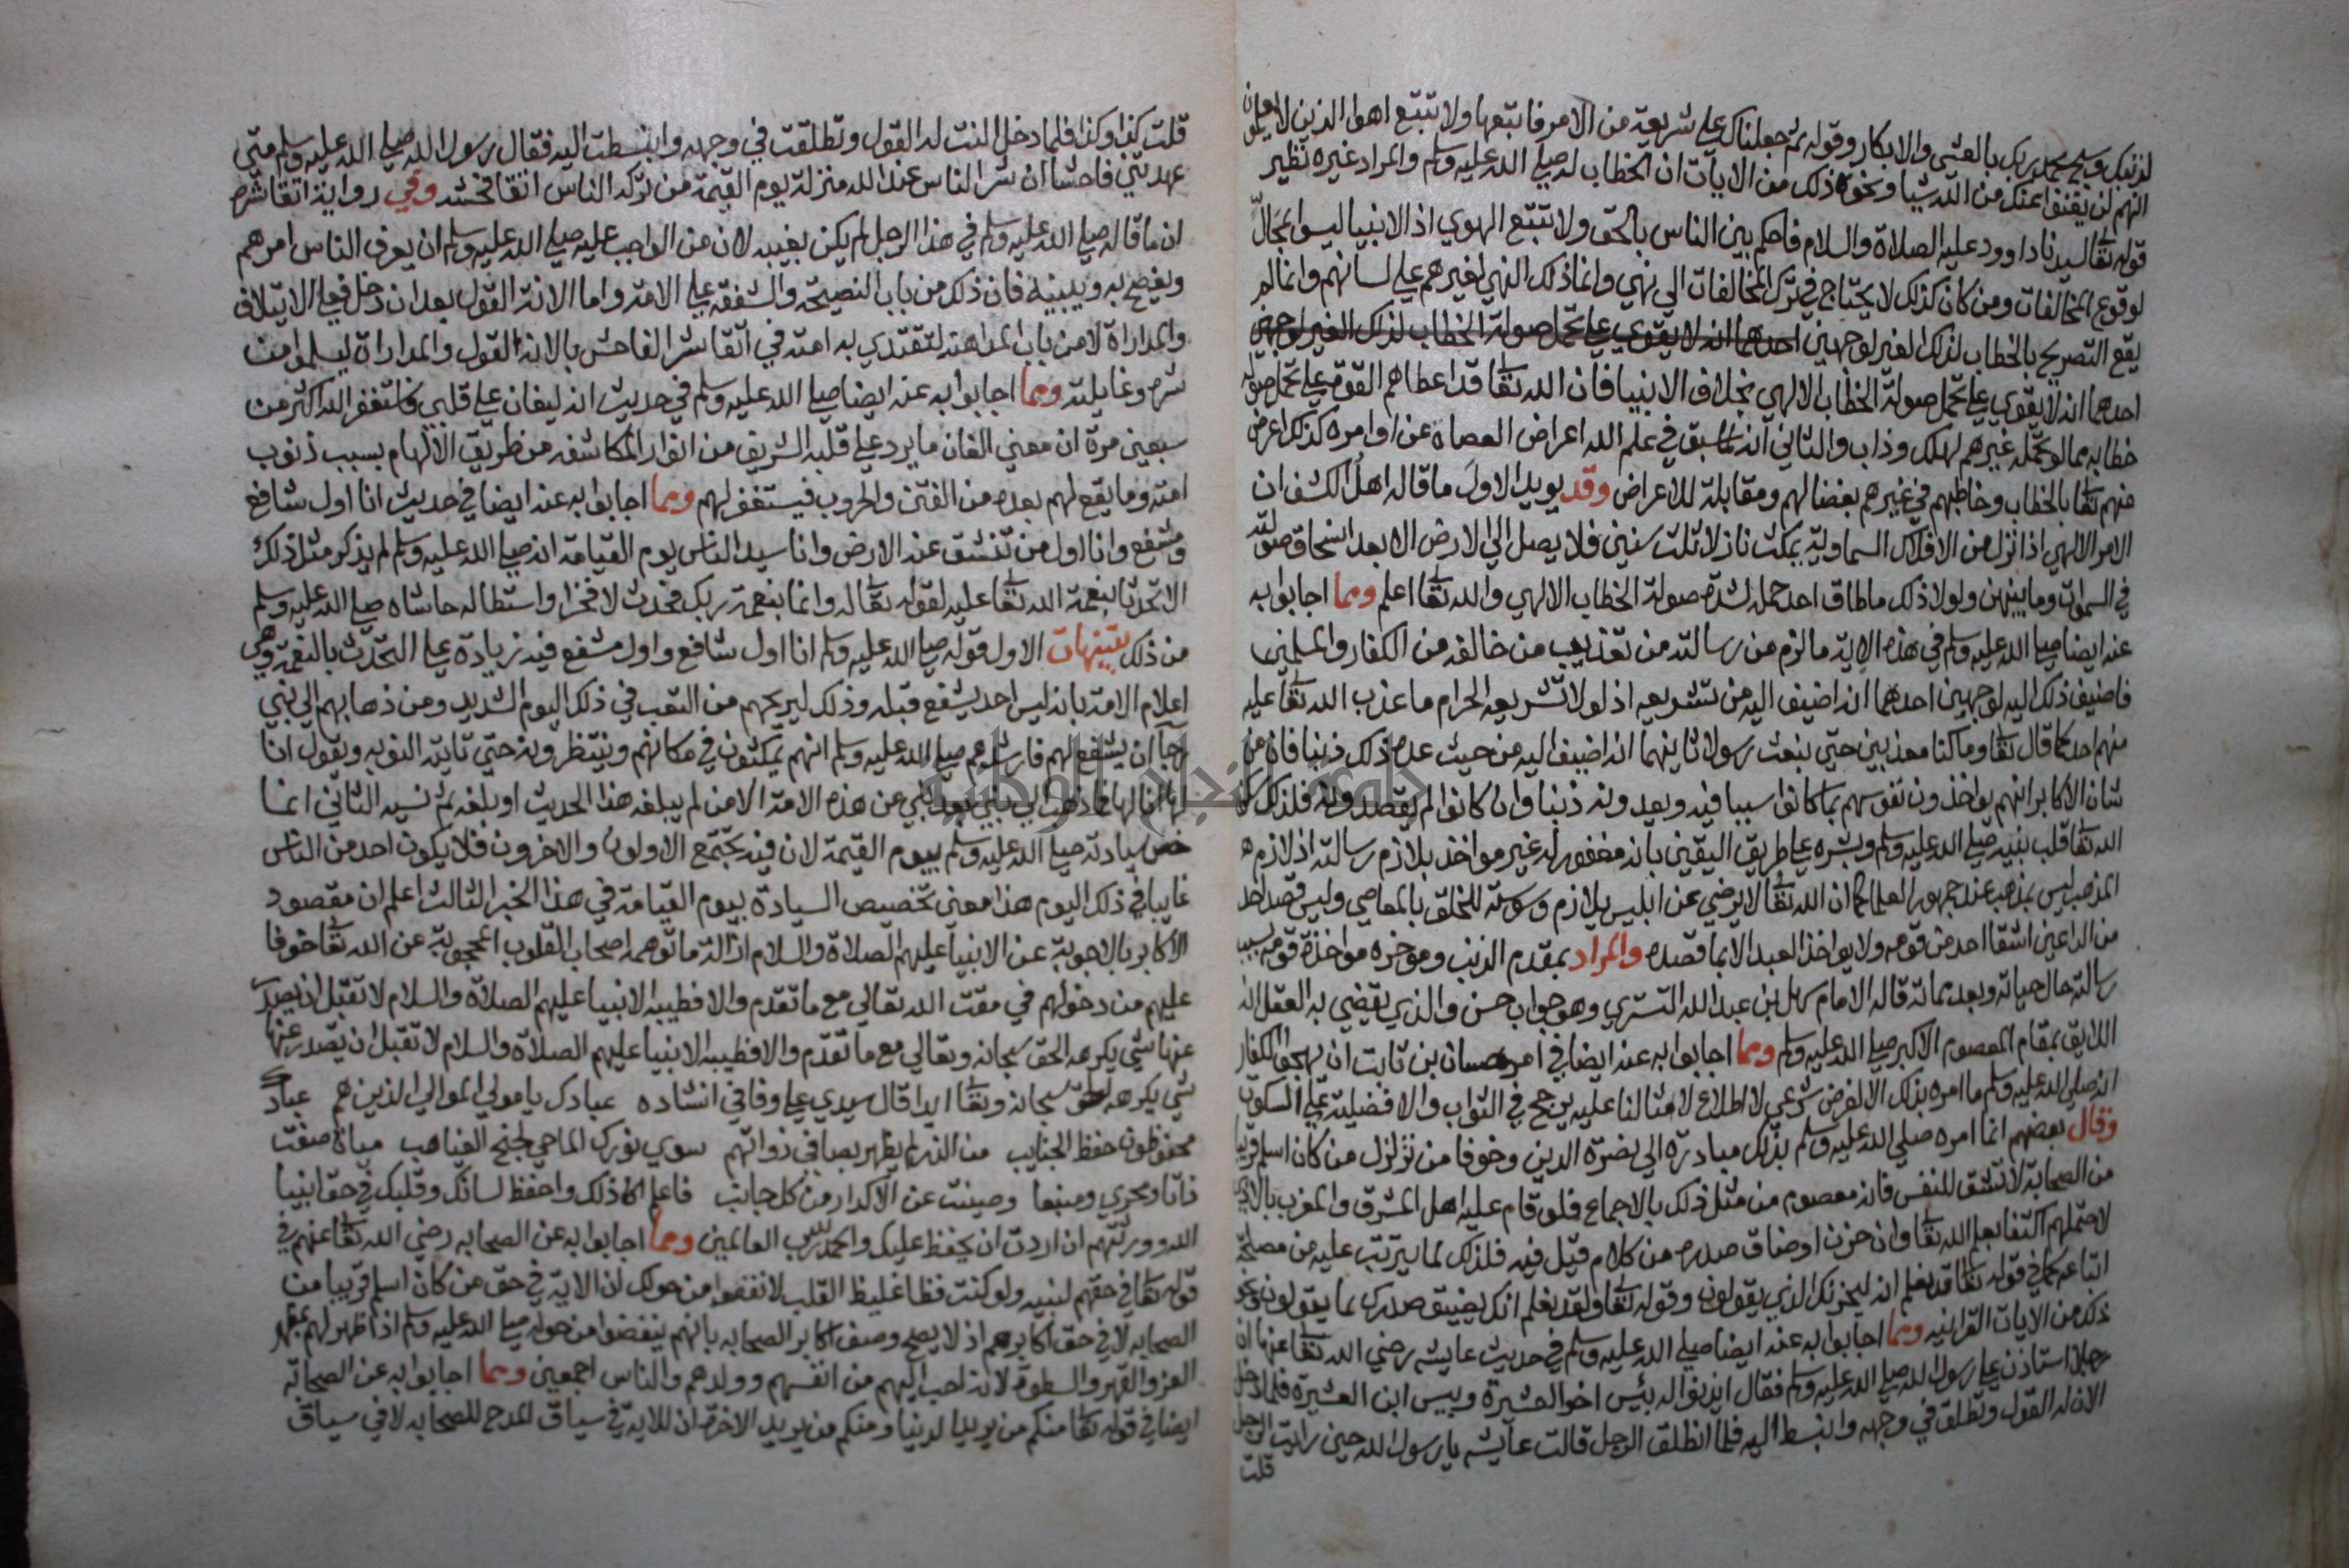 لذنبك وسبح بحمد ربك بالعشي والابكار وقوله ثم جعلناك علي شريعة من الامر فاتبعها ولا تتبع اهوا الذين لا يعلمون
انهم لن يغنوا عنك من الله شيا ونحو ذلك من الايات ان الخطاب له صلي الله عليه وسلم والمراد غيره نظير
قوله تعا لسيدنا داوود عليه الصلاة والسلام فاحكم بين الناس بالحق ولا تتبع الهوي اذ الانبيا ليسوا بمحال
لوقوع المخالفات ومن كان كذلك لا يحتاج في ترك المخالفات الي نهي وانما ذلك النهي لغيرهم علي لسانهم وانما لم
يقع التصريح بالخطاب لذلك الغير لوجهين احدهما انه لا يقوي علي تحمل صولة الخطاب لذلك الغير لوجهين
احدهما انه لا يقوي علي تحمل صولة الخطاب الالهي بخلاف الانبيا فان الله تعا قد اعطاهم القوة علي تحمل صولة
خطابه مما لو تحمله غيرهم لهلك وذاب والثاني انه لما سبق في علم الله اعراض العصاة عن اوامره كذلك اعرض
عنهم تعا بالخطاب وخاطبهم في غيرهم بغضا لهم ومقابلة للاعراض وقد يويد الاول ما قاله اهل الكشف ان
الامر الالهي اذا نزل من الافلاك السماوية يمكث نازلا ثلث سنين فلا يصل الي الارض الا بعد انسحاق صولته
في السموات وما بينهن ولولا ذلك ما طاق احد حمله لشدة صولة الخطاب الالهي والله تعا اعلم ومما اجابوا به
عنه ايضا صلي الله عليه وسلم في هذه الاية ما لزم من رسالته من تعذيب من خالفه من الكفار والمسلمين
فاضيف ذلك اليه لوجهين احدهما انه اضيف اليه من تشريعه اذ لولا تشريعه الحرام ما عذب الله تعا عليه
منهم احد كما قال تعا وما كنا معذبين حتي نبعث رسولا ثانيهما انه اضيف اليه من حيث عده ذلك ذنبا فان من
شان الاكابر انهم يواخذون نفوسهم بما كانوا سببا فيه ويعدونه ذنبا وان كانوا لم يقصدونه فلذلك
الله تعا قلب نبيه صلي الله عليه وسلم وبشره علي طريق اليقين بانه مغفور له غير مواخذ بلازم رسالته اذ لازم
المذهب ليس بمذهب عند جمهور العلما كما ان الله تعا لا يرضي عن ابليس بلازم وسوسته للخلق بالمعاصي وليس قصد احد
من الداعين اشقا احد من قومه ولا يواخذ العبد الا بما قصده والمراد بمقدم الذنب وموخره مواخذة قومه بسبب
رسالته حال حياته وبعد مماته قاله الامام سهل بن عبد الله التستري وهو جواب حسن والذي يقضي به العقل انه
اللايق بمقام المعصوم الاكبر صلي الله عليه وسلم ومما اجابوا به عنه ايضا في امره حسان بن ثابت ان يهجو الكفار
انه صلي الله عليه وسلم ما امره بذلك الا لغرض شرعي لا اطلاع لامثالنا عليه يرجح في الثواب والافضلية علي السكوت
وقال بعضهم انما امره صلي الله عليه وسلم بذلك مبادرة الي نصرة الدين وخوفا من تزلزل من كان اسلم قريبا
من الصحابة لا تشف للنفس فانه معصوم من مثل ذلك بالاجماع فلو قام عليه اهل المشرق والمغرب بالاذي
لاحتملهم اكتفا بعلم الله تعا وان حزن اوضاق صدره من كلام قيل فيه فلذلك لما يترتب عليه من مصلحة
اتباعه كما في قوله تعا قد نعلم انه ليحزنك الذي يقولون وقوله تعا ولقد نعلم انك يضيق صدرك بما يقولون ونحو
ذلك من الايات القرانية ومما اجابوا به عنه ايضا صلي الله عليه وسلم في حديث عايشه رضي الله تعا عنها ان
رجلا استاذن علي رسول الله صلي الله عليه وسلم فقال ايذنوا له بئس اخو العشيرة وبيس ابن العشيرة فلما دخل
الان له القول وتطلق في وجهه وانبسط اليه فلما انطلق الرجل قالت عايشه يا رسول الله حين رايت الرجل
قلت
قلت كذا وكذا فلما دخل النت له القول وتطلقت في وجهه وانبسطت اليه فقال رسول الله صلي الله عليه وسلم متي
عهدتني فاحشا ان شر الناس عند الله منزلة يوم القيمة من تركه الناس اتقا فحشه وفي رواية اتقا شره
ان ما قاله صلي الله عليه وسلم في هذا الرجل لم يكن بغيبة لان من الواجب عليه صلي الله عليه وسلم ان يعرف الناس امرهم
ويفصح به ويبينه فان ذلك من باب النصيحة والشفقة علي الامة واما الانة القول بعد ان دخل فعلي الايتلاف
والمداراة لا من باب المداهنة لتقتدي به امته في اتقا شر الفاحش بالانة القول والمداراة ليسلموا من
شره وغايلته ومما اجابوا به عنه ايضا صلي الله عليه وسلم في حديث انه ليغان علي قلبي فاستغفر الله اكثر من
سبعين مرة ان معني الغان ما يرد علي قلبه الشريف من انوار المكاشفة من طريق الالهام بسبب ذنوب
امته وما يقع لهم بعده من الفتن والحروب فيستغفر لهم ومما اجابوا به عنه ايضا في حديث انا اول شافع
ومشفع وانا اول من تنشق عنه الارض وانا سيد الناس يوم القيامة انه صلي الله عليه وسلم لم يذكر مثل ذلك
الا تحدثا بنعمة الله تعا عليه لقوله تعا له واما بنعمة ربك فحدث لا فخرا واستطاله حاشاه صلي الله عليه وسلم
من ذلك تنبيهات الاول قوله صلي الله عليه وسلم انا اول شافع واول مشفع فيه زيادة علي التحدث بالنعمة وهي
اعلام الامة بانه ليس احد يشفع قبله وذلك ليريحهم من التعب في ذلك اليوم الشديد ومن ذهابهم الي نبي
رجا ان يشفع لهم فارشدهم صلي الله عليه وسلم انهم يمكثون في مكانهم وينتظرونه حتي تاتيه النوبه ويقول انا
لها انا لها فما ذهب الي نبي بعد نبي من هذه الامة الا من لم يبلغه هذا الحديث او بلغه ثم نسيه الثاني انما
خص سيادته صلي الله عليه وسلم بيوم القيمة لان فيه يجتمع الاولون والاخرون فلا يكون احد من الناس
غايبا في ذلك اليوم هذا معني تخصيص السيادة بيوم القيامة في هذا الخبر الثالث اعلم ان مقصود
الاكابر بالاجوبة عن الانبيا عليهم الصلاة والسلام ازالة ما توهمه اصحاب القلوب المحجوبة عن الله تعا خوفا
عليهم من دخولهم في مقت الله تعالي مع ما تقدم والا فطيبة الانبيا عليهم الصلاة والسلام لا تقبل ان يصدر
عنها شي يكرهه الحق سبحانه وتعالي مع ما تقدم والا فطيبة الانبيا عليهم الصلاة والسلام لا تقبل ان يصدر عنها
شي يكرهه الحق سبحانه وتعا ابدا قال سيدي علي وفا في انشاده عبادك يا مولي الموالي الذين هم عباد
محفوظون حفظ الجنايب من الذر لم يظهر بصافي ذواتهم سوي نورك الماحي لجنح الغياهب مياه صفت
ذاتا ومجري ومنبعا وصينت عن الاكدار من كل جانب فاعلم ذلك واحفظ لسانك وقلبك في حق انبيا
الله وورثتهم ان اردت ان يحفظ عليك والحمد لله رب العالمين ومما اجابوا به عن الصحابه رضي الله تعا عنهم في
قوله تعا في حقهم لنبيه ولو كنت فظا غليظ القلب لانفضوا من حولك ان الاية في حق من كان اسلم قريبا من
الصحابه لا في حق اكابرهم اذ لا يصح وصف اكابر الصحابه بانهم ينفضوا من حوله صلي الله عليه وسلم اذا ظهر لهم بمظهر
العز والقهر والسطوة لانه احب اليهم من انفسهم وولدهم والناس اجمعين ومما اجابوا به عن الصحابة
ايضا في قوله تعا منكم من يريد الدنيا ومنكم من يريد الاخرة ان الاية في سياق المدح للصحابه لا في سياق